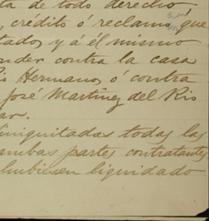 ta de todo derecho
, crédito ó reclamo, que
tados y á él mismo
nder contra la casa
Río Hermanos, ó contra
José Martinez del Rio
ar.
finiquitadas todas las
ambas partes contratantes
hubiesen liquidado